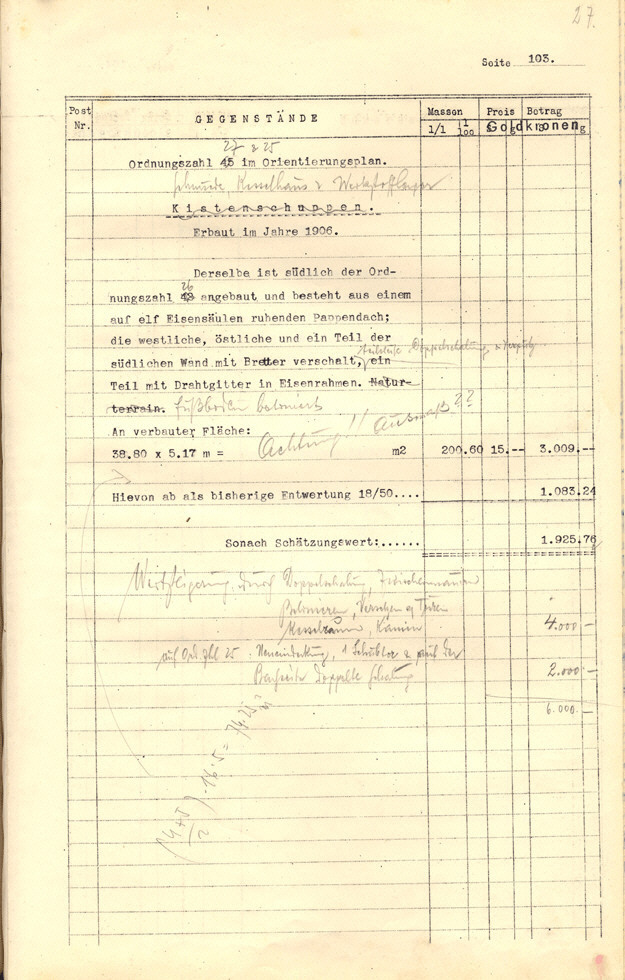 27.
Seite 103.
Post Nr. GEGENSTÄNDE Massen 1/1 1/100 Preis Betrag Goldkronen
27 & 25
Ordnungszahl 45 im Orientierungsplan.
Schmiede, Kesselhaus & Werkstofflager
Kistenschuppen.
Erbaut im Jahre 1906.
Derselbe ist südlich der Ord-
26
nungszahl 43 angebaut und besteht aus einem
auf elf Eisensäulen ruhenden Pappendach;
die westliche, östliche und ein Teil der
Doppelschalung
südlichen Wand mit Bretter verschalt, ein
Teil mit Drahtgitter in Eisenrahmen. Natur-
terrain. Fußboden betoniert
An verbauter Fläche: Achtung!! Ausmaß??
38.80 x 5.17 m = m2 200.60 15.-- 3.009.--
Hievon ab als bisherige Entwertung 18/50.... 1.083.24
Sonach Schätzungswert:...... 1.925.76
Wertsteigerung durch Doppelschalung, Zwischenmauern
Betonieren, Versetzen
Kesselraum, Kamin 4.000.-
auf Ord. Zhl 25 Neueindeckung, 1
Doppelte Schalung 2.000.-
6.000.-
(4+5/2) · 16.5 = 74.25 m²